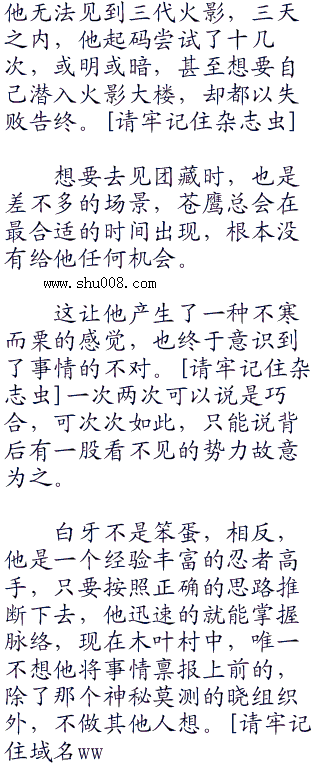 他无法见到三代火影，三天
之内，他起码尝试了十几
次，或明或暗，甚至想要自
己潜入火影大楼，却都以失
败告终。[请牢记住杂志虫]
想要去见团藏时，也是
差不多的场景，苍鹰总会在
最合适的时间出现，根本没
有给他任何机会。
www.shu008.com
这让他产生了一种不寒
而栗的感觉，也终于意识到
了事情的不对。[请牢记住杂
志虫]一次两次可以说是巧
合，可次次如此，只能说背
后有一股看不见的势力故意
为之。
白牙不是笨蛋，相反，
他是一个经验丰富的忍者高
手，只要按照正确的思路推
断下去，他迅速的就能掌握
脉络，现在木叶村中，唯一
不想他将事情禀报上前的，
除了那个神秘莫测的晓组织
外，不做其他人想。[请牢记
住域名ww